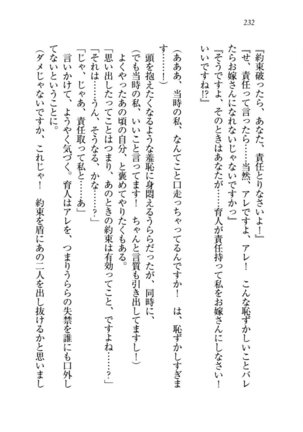 232
『約束破ったら、あなた、責任とりなさいよ！』
『せ、責任って言ったら……当然、アレですよ、アレ！　こんな恥ずかしいことバレ
たらお嫁さんになれないじゃないですかっ』
『そうですよ、そのときはあなたが……育人が責任持って私をお嫁さんにしなさい！
いいですね!?』
（あああ、当時の私、なんてこと口走っちゃってるんですか！　は、恥ずかしすぎま
す……！）
　頭を抱えたくなるような羞恥に身悶えるうららだったが、同時に、
（でも当時の私、いいこと言ってます！　ちゃんと言質も引き出してますし！）
　よくやったあの頃の自分、と褒めてやりたくもある。
「思い出したってことはつまり、あのときの約束は有効ってこと、ですよね……？」
「それは……うん、そうなる、かな……？」
「じゃ、じゃあ、責任取って私と……あ」
　言いかけて、ようやく気づく。育人はアレを、つまりうららの失禁を誰にも口外し
てないということに。
（ダメじゃないですか、これじゃ！　約束を盾にあの二人を出し抜けるかと思いまし